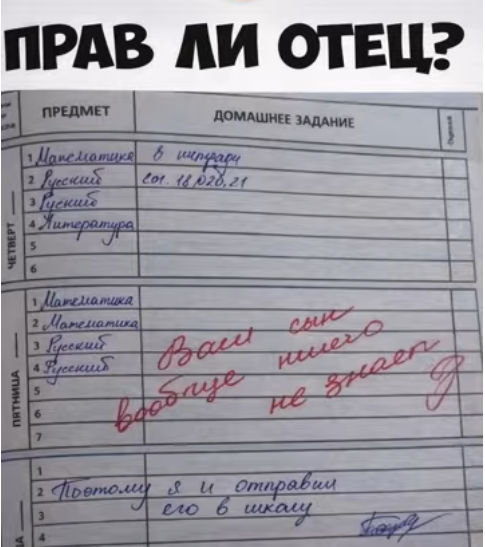 ПРАВ ЛИ ОТЕЦ?
ПРЕДМЕТ ДОМАШНЕЕ ЗАДАНИЕ Оценка
ЧЕТВЕРГ
1 Математика в тетради
2 Русский
3 Русский
4 Литература
5
6
ПЯТНИЦА
1 Математика
2 Математика
3 Русский
4 Русский
5
6
7
Ваш сын
вообще ничего
не знает
1
2 Поэтому я и отправил
3 его в школу
4